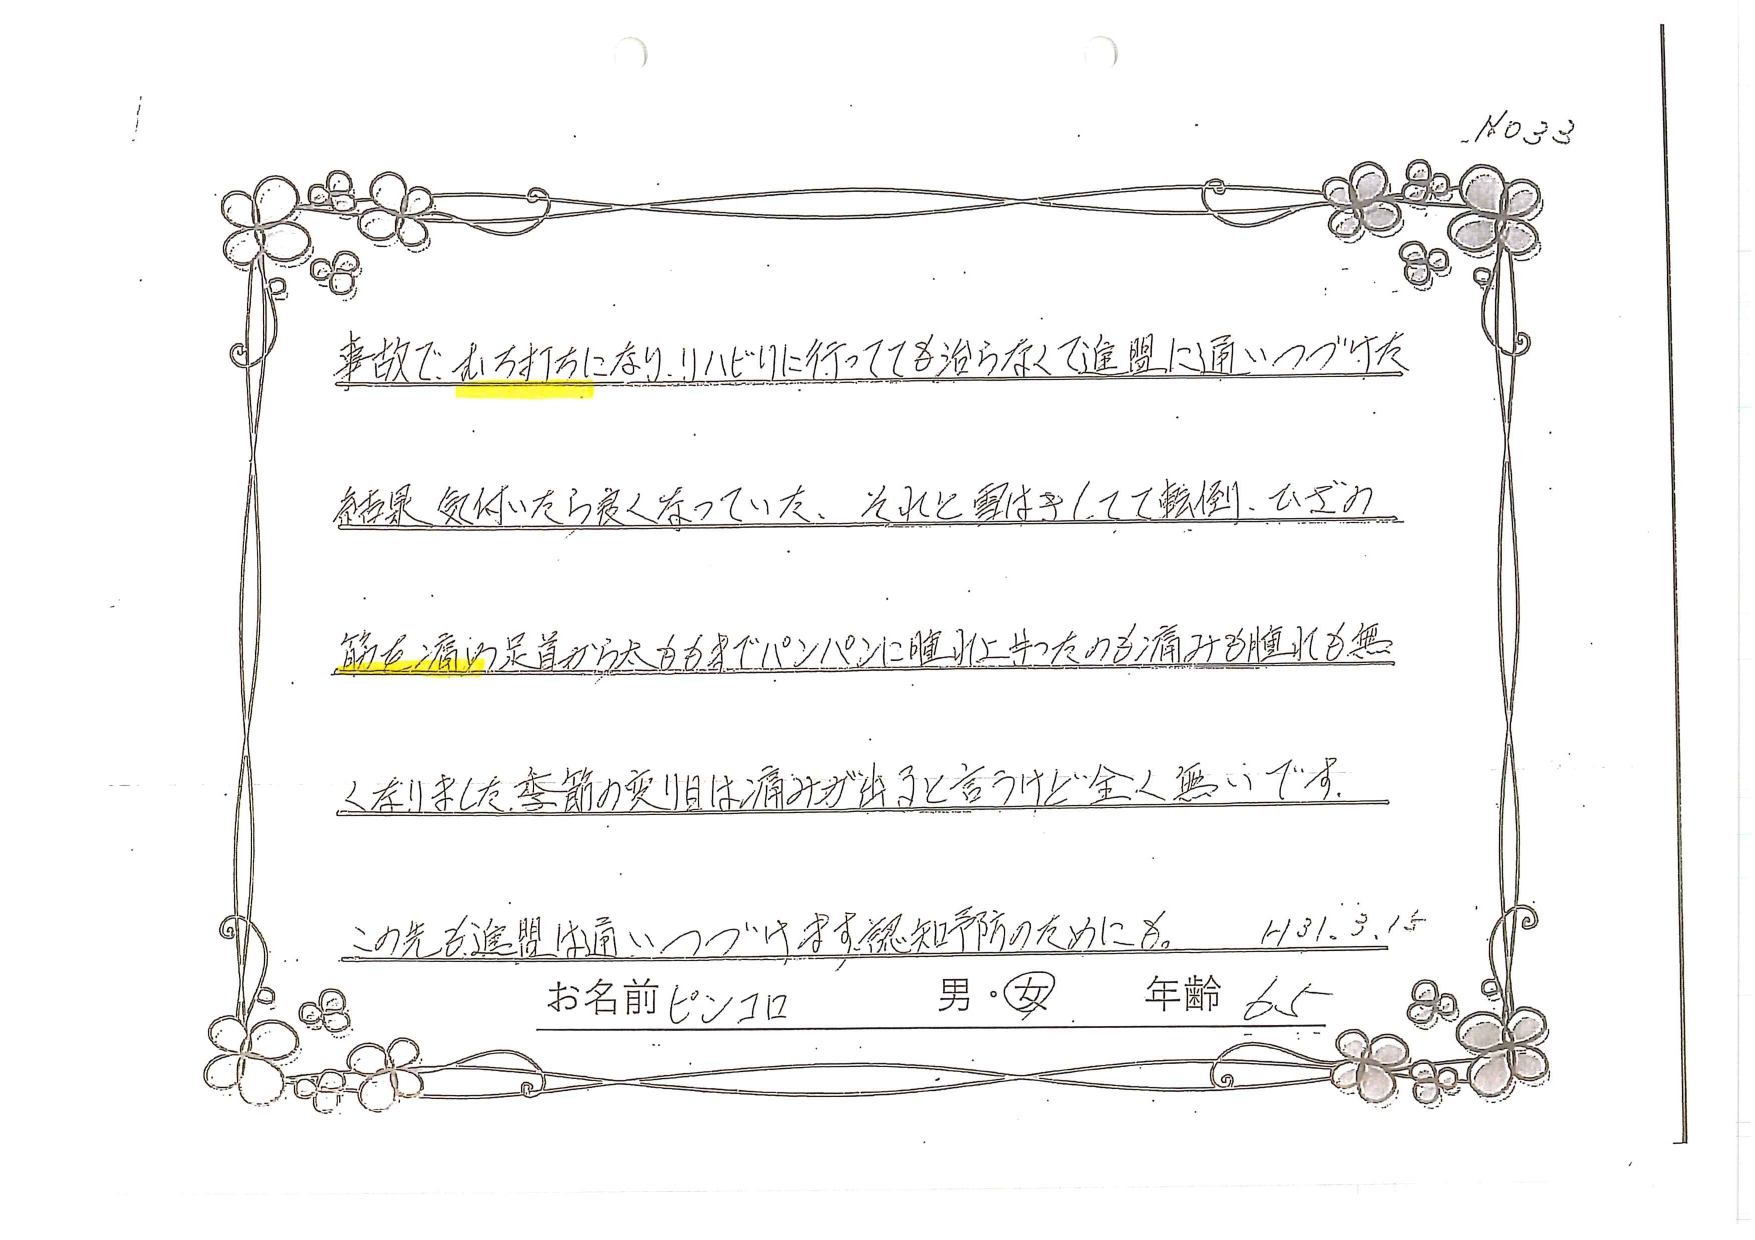 NO33
事故で、むち打ちになり、リハビリに行ってても治らなくて進盟に通いつづけた
結果 気付いたら良くなっていた、 それと雪はきしてて転倒、ひざの
筋を痛め足首から太ももまでパンパンに腫れ上ったのも痛みも腫れも無
くなりました、季節の変り目は痛みが出ると言うけど全く無いです、
この先も進盟は通いつづけます、認知予防のためにも。 H31.3.15
お名前 ピンコロ 男・女 年齢 65